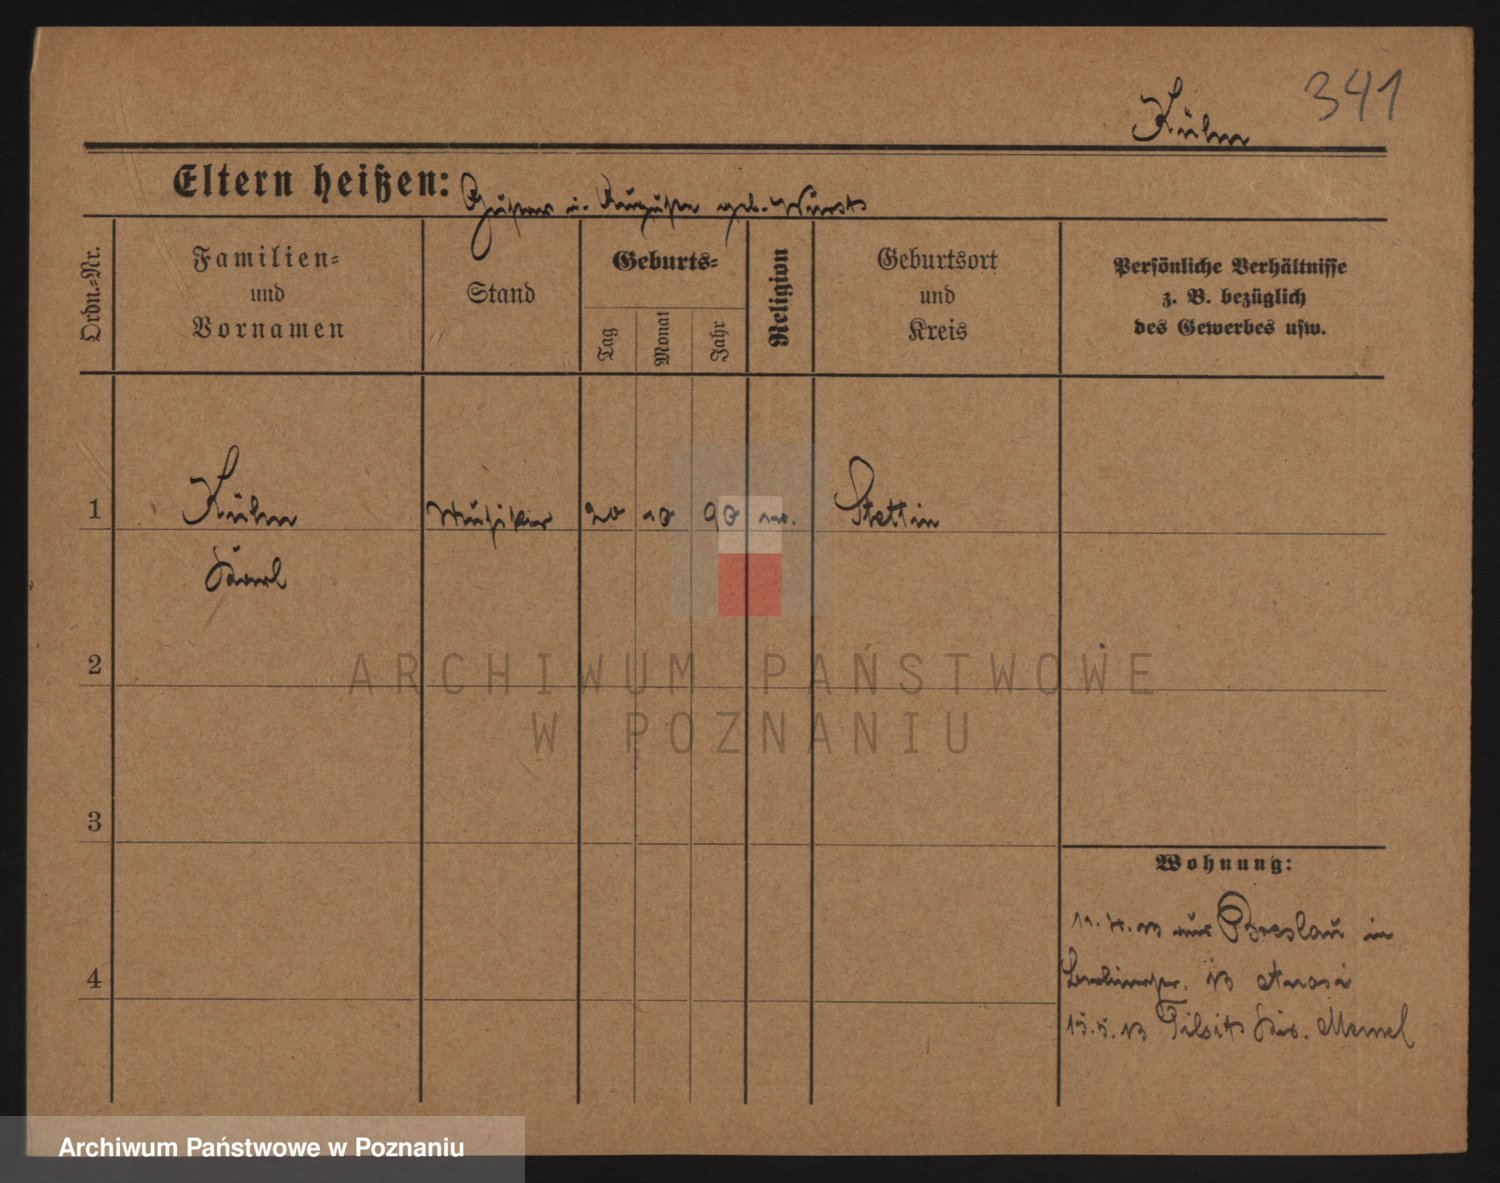 341
Kühn
Eltern heißen: Gustav u. Auguste geb. Wurst
Ordn.-Nr.
Familien-
und
Vornamen
Stand
Geburts-
Tag
Monat
Jahr
Religion
Geburtsort
und
Kreis
Persönliche Verhältnisse
z. B. bezüglich
des Gewerbes usw.
1 Kühn Musiker 20 10 90 Stettin
Karl
2
3
4
Wohnung:
11. 4. 13 aus Breslau in
Berlinerstr. 13
15. 5. 13 Tilsit Memel
ARCHIWUM PAŃSTWOWE
W POZNANIU
Archiwum Państwowe w Poznaniu